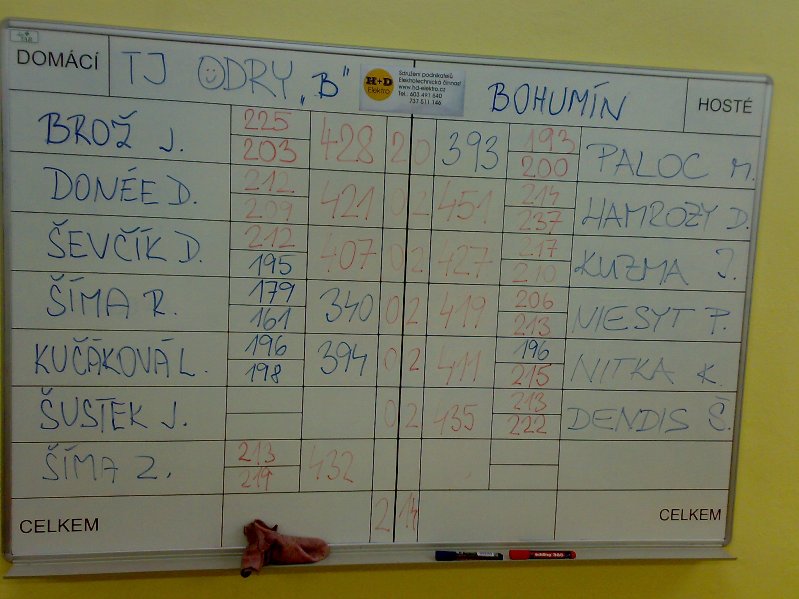 DOMÁCÍ TJ ODRY „B" BOHUMÍN HOSTÉ
H+D Elektro
Sdružení podnikatelů
Elektrotechnická činnost
www.hd-elektro.cz
Tel.: 603 491 640
737 511 146
BROŽ J. 225 428 2 0 393 193 PALOC M.
203 200
DONÉE D. 212 421 0 2 451 214 HAMROZY D.
209 237
ŠEVČÍK D. 212 407 0 2 427 217 KUZMA J.
195 210
ŠÍMA R. 179 340 0 2 419 206 NIESYT P.
161 213
KUČÁKOVÁ L. 196 394 0 2 411 196 NITKA K.
198 215
ŠUSTEK J. 0 2 435 213 DENDIS Š.
222
ŠÍMA Z. 213 432
219
CELKEM 2 14 CELKEM
edding 360